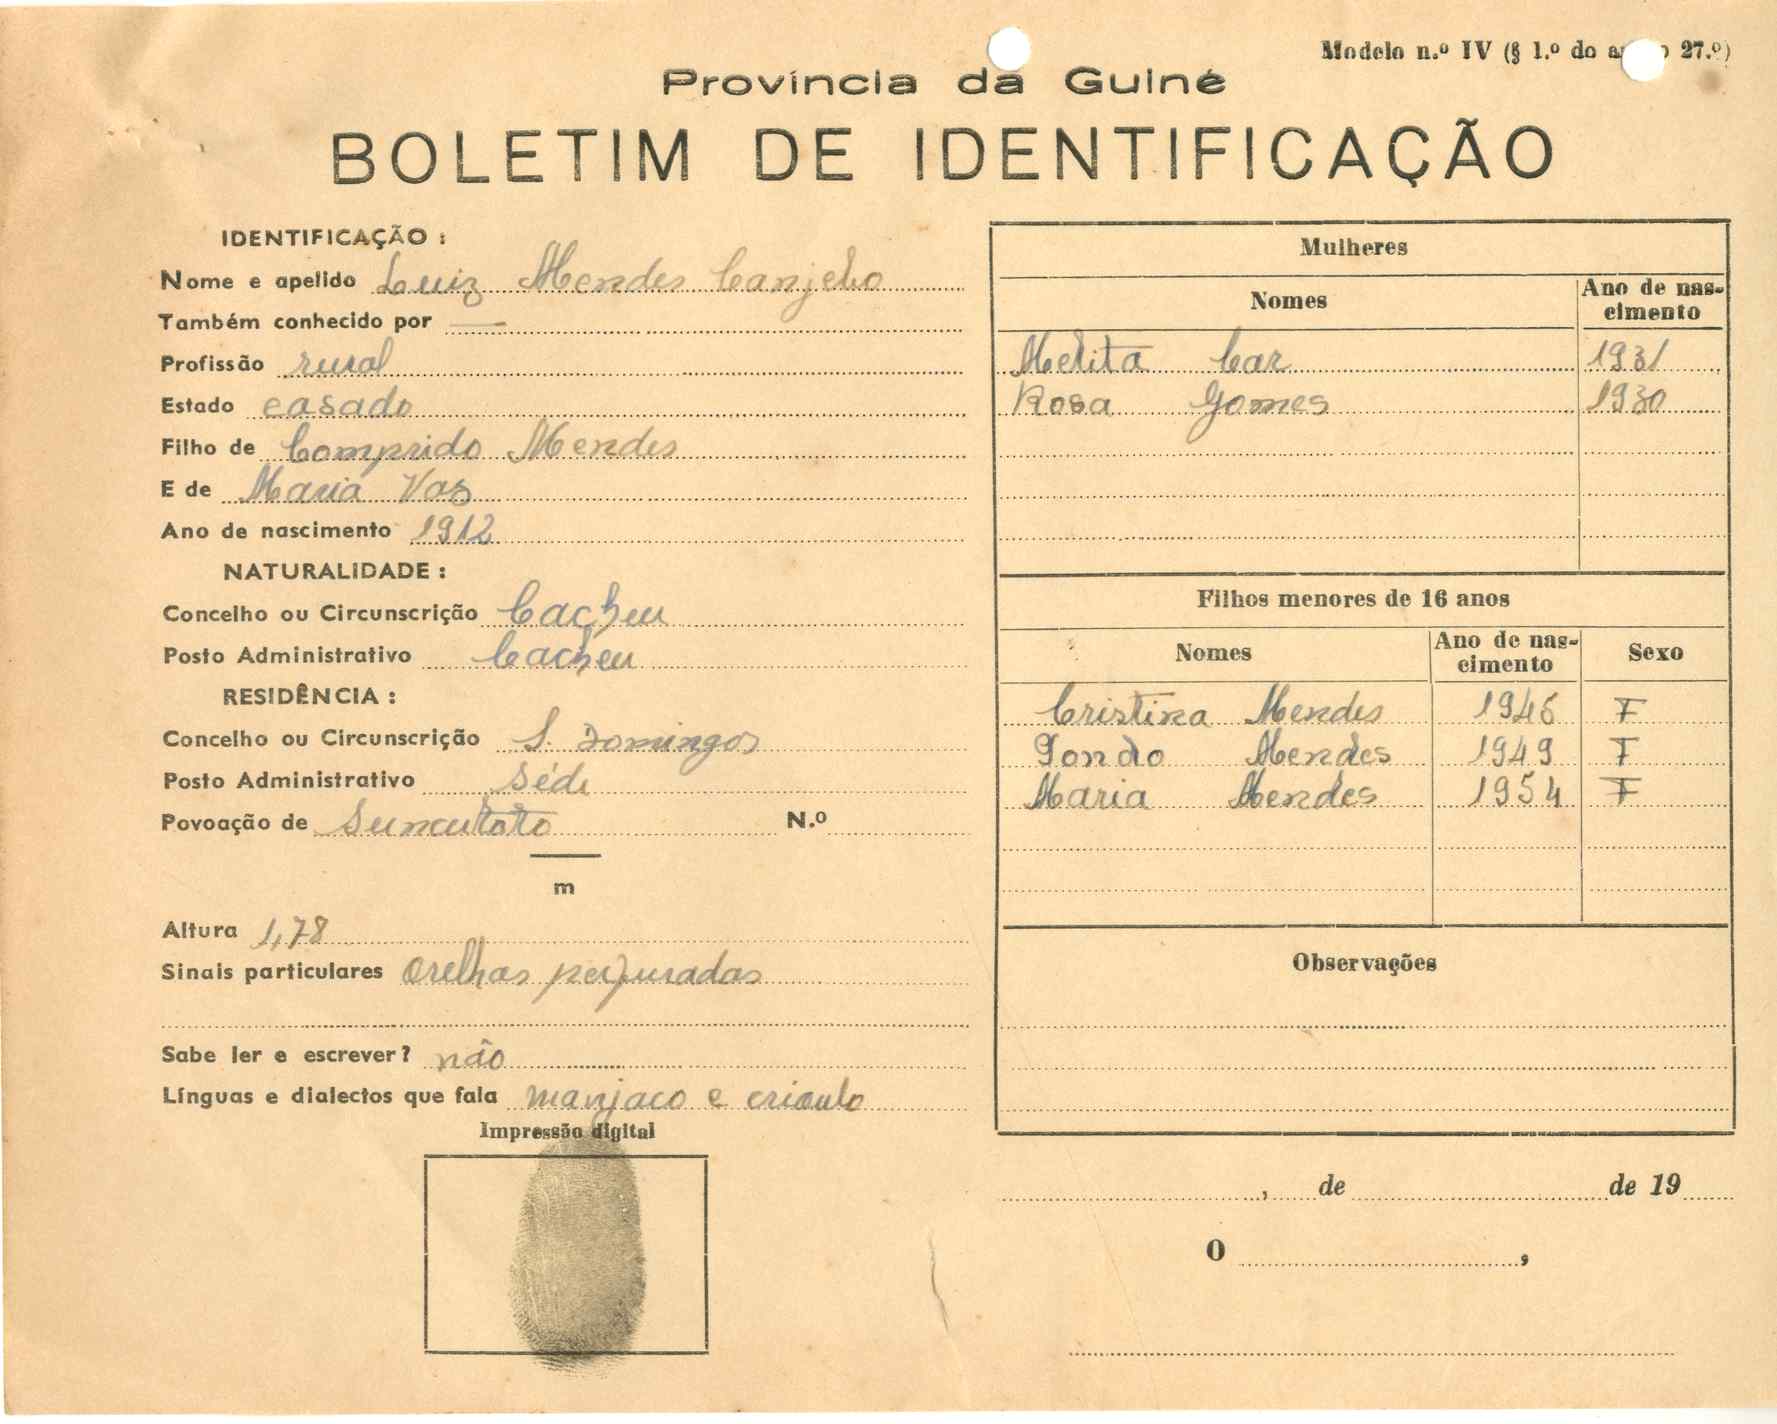 Modelo n.º IV (§ 1.º do 27.º)
Província da Guiné
BOLETIM DE IDENTIFICAÇÃO
IDENTIFICAÇÃO :
Nome e apelido Luiz Mendes
Também conhecido por —
Profissão rural
Estado casado
Filho de Comprido Mendes
E de Maria Vaz
Ano de nascimento 1912
NATURALIDADE :
Concelho ou Circunscrição Cacheu
Posto Administrativo Cacheu
RESIDÊNCIA :
Concelho ou Circunscrição S. Domingos
Posto Administrativo Séde
Povoação de Suncutoto N.º
m
Altura 1,78
Sinais particulares Orelhas perfuradas
Sabe ler e escrever? não
Línguas e dialectos que fala manjaco e crioulo
Impressão digital
Mulheres
Nomes Ano de nas-
cimento
Melita Car 1931
Rosa Gomes 1930
Filhos menores de 16 anos
Nomes Ano de nas-
cimento Sexo
Cristina Mendes 1945 F
Mendes 1949 F
Maria Mendes 1954 F
Observações
, de de 19
O ,